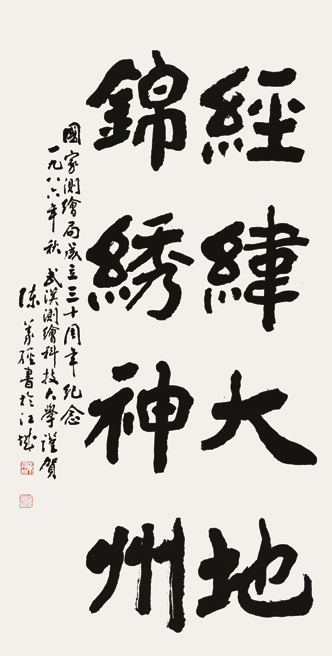 經緯大地
錦绣神州
國家測繪局成立三十周年纪念
一九八六年秋 武漢測繪科技大學謹賀
陈義經書於江城